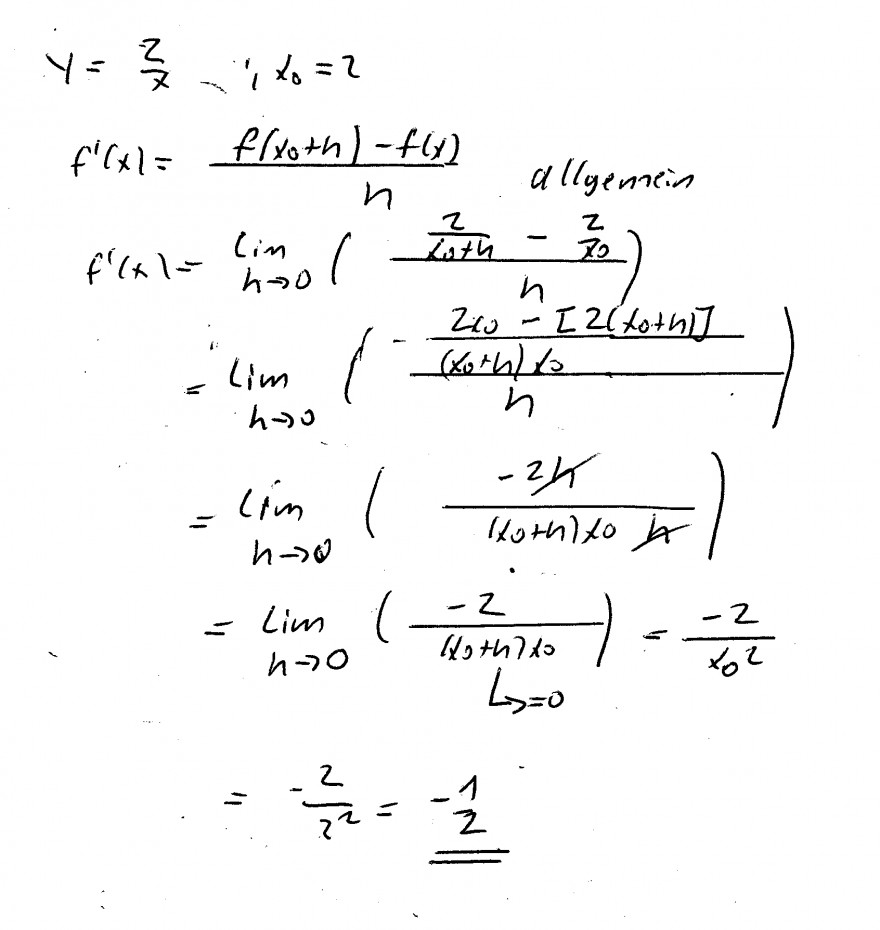 y = 2/x ; x₀ = 2
f'(x) = (f(x₀+h) - f(x)) / h
allgemein
f'(x) = lim h→0 ( (2/(x₀+h) - 2/x₀) / h )
= lim h→0 ( - ((2x₀ - [2(x₀+h)]) / ((x₀+h) x₀)) / h )
= lim h→0 ( -2h / ((x₀+h) x₀ h) )
= lim h→0 ( -2 / ((x₀+h) x₀) ) = -2 / x₀²
↳ = 0
= -2/2² = -1/2